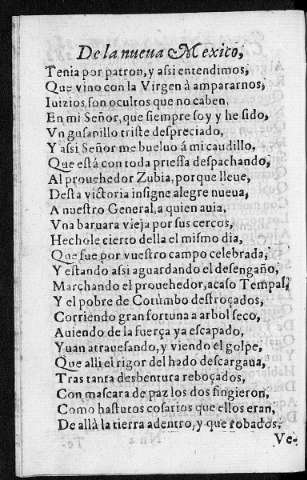 De la nueua Mexico,
Tenia por patron, y assi entendimos,
Que vino con la Virgen â ampararnos,
Iuizios, son ocultos que no caben,
En mi Señor, que siempre soy y he sido,
Vn gusanillo triste despreciado,
Y assi Señor me bueluo â mi caudillo,
Que estâ con toda priessa despachando,
Al prouehedor Zubia, porque lleue,
Desta victoria insigne alegre nueua,
A nuestro General, a quien auia,
Vna baruara vieja por sus cercos,
Hechole cierto della el mismo dia,
Que fue por vuestro campo celebrada,
Y estando assi aguardando el desengaño,
Marchando el prouehedor, acaso Tempal,
Y el pobre de Cotumbo destroçados,
Corriendo gran fortuna a arbol seco,
Auiendo de la fuerça ya escapado,
Yuan atrauesando, y viendo el golpe,
Que alli el rigor del hado descargaua,
Tras tanta desbentura reboçados,
Con mascara de paz los dos fingieron,
Como hastutos cosarios que ellos eran,
De allâ la tierra adentro, y que robados,
Ve-